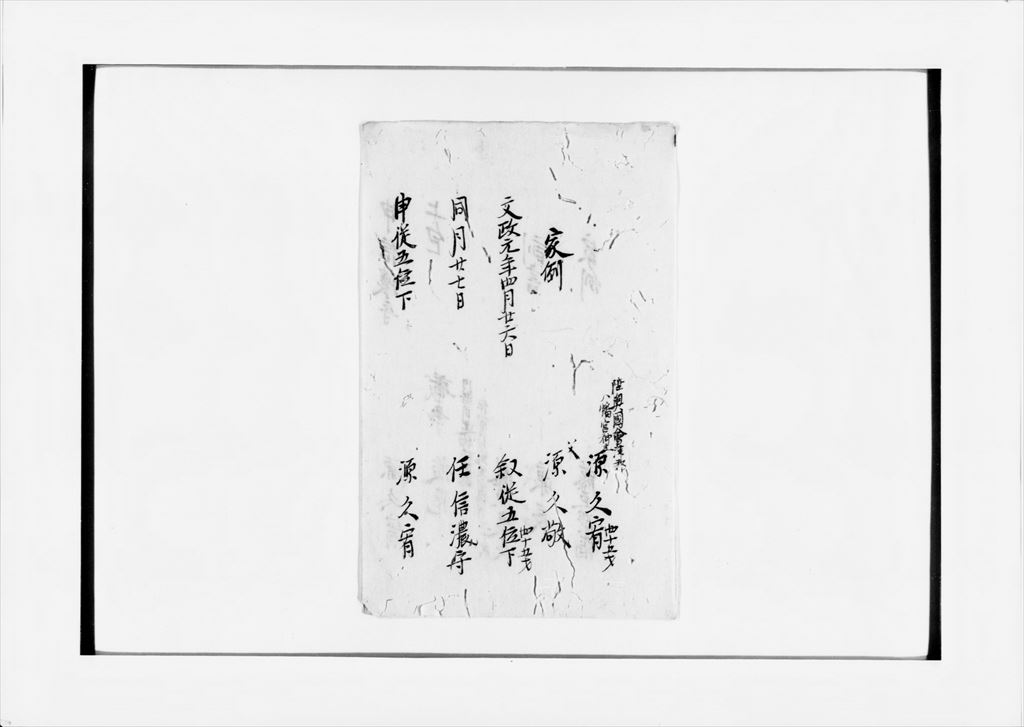 陸奥國會津郡
八幡宮神主
源久宵
四十五才
家例
父
源久敬
文政元年四月廿六日
叙従五位下
四十五才
同月廿七日
任信濃守
申従五位下
源久宵